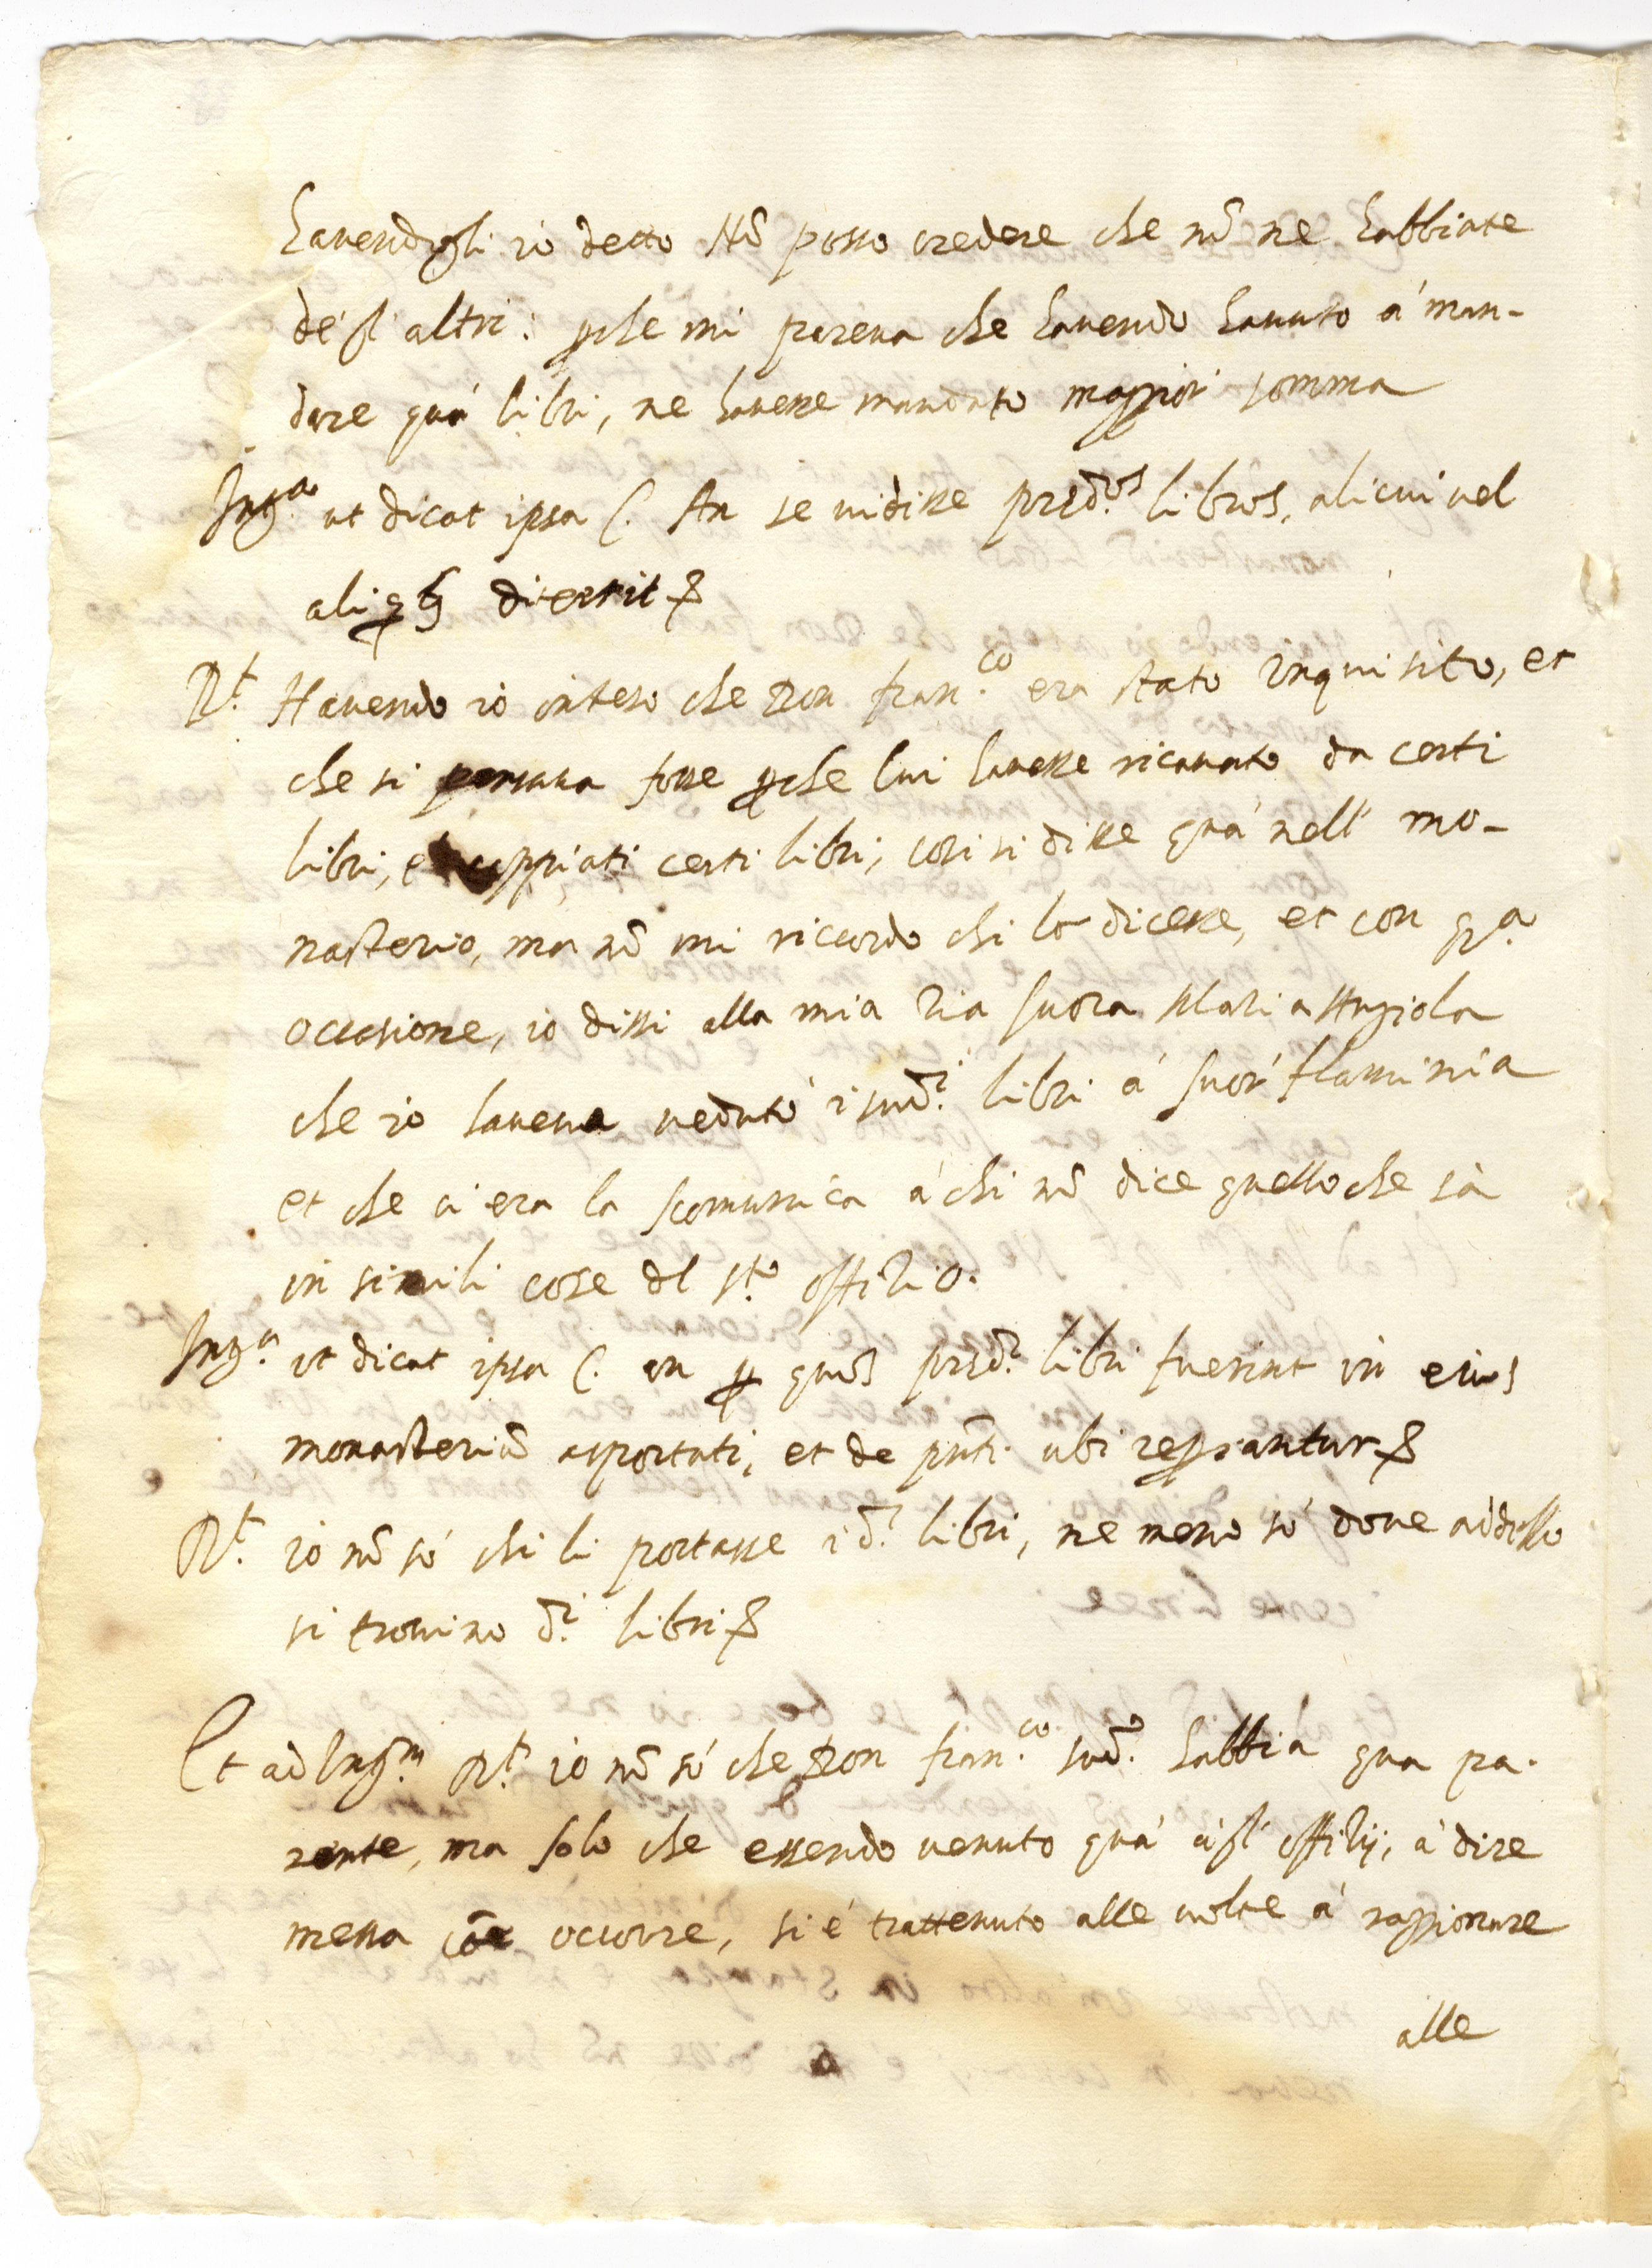 havendogli io detto Nō posso credere che nō ne habbiate
de gl' altri: pche mi pareva che havendo havuto á man-
dare quá libri, ne havesse mandato maggior somma
Intᵃ ut dicat ipsa C. An se vidisse predᵒˢ libros, alicui vel
dixerit
Rᵗ Havendo io inteso che Don Franᶜᵒ era stato Inquisito, et
che si pensava fosse pche lui havesse ricavato da certi
libri, e coppiati certi libri, cosi si disse quá nell' mo-
nasterio, ma nō mi riccordo chi lo dicesse, et con qᵃ
occasione, io dissi alla mia Zia Suora Maria Angiola
che io haveva veduto i sudⁱ libri á Suor' Flaminia
et che ci era la scomunica á chi nō dice quello che sà
in simili cose dl Sᵗᵒ Offitio.
Intᵃ ut dicat ipsa C. an p quos predⁱ libri fuerint in eius
monasteriū asportati, et de pnti ubi reperiantur
Rᵗ io nō só chi li portasse i dⁱ libri, ne meno só dove addesso
si trovino dⁱ libri
Et ad Intᵐ Rᵗ io nō só che Don Franᶜᵒ sudᵒ habbia qua pa-
rente, ma solo che essendo venuto quá á gl' offitij, á dire
messa cōe occorre, si é trattenuto alle volte á raggionare
alle